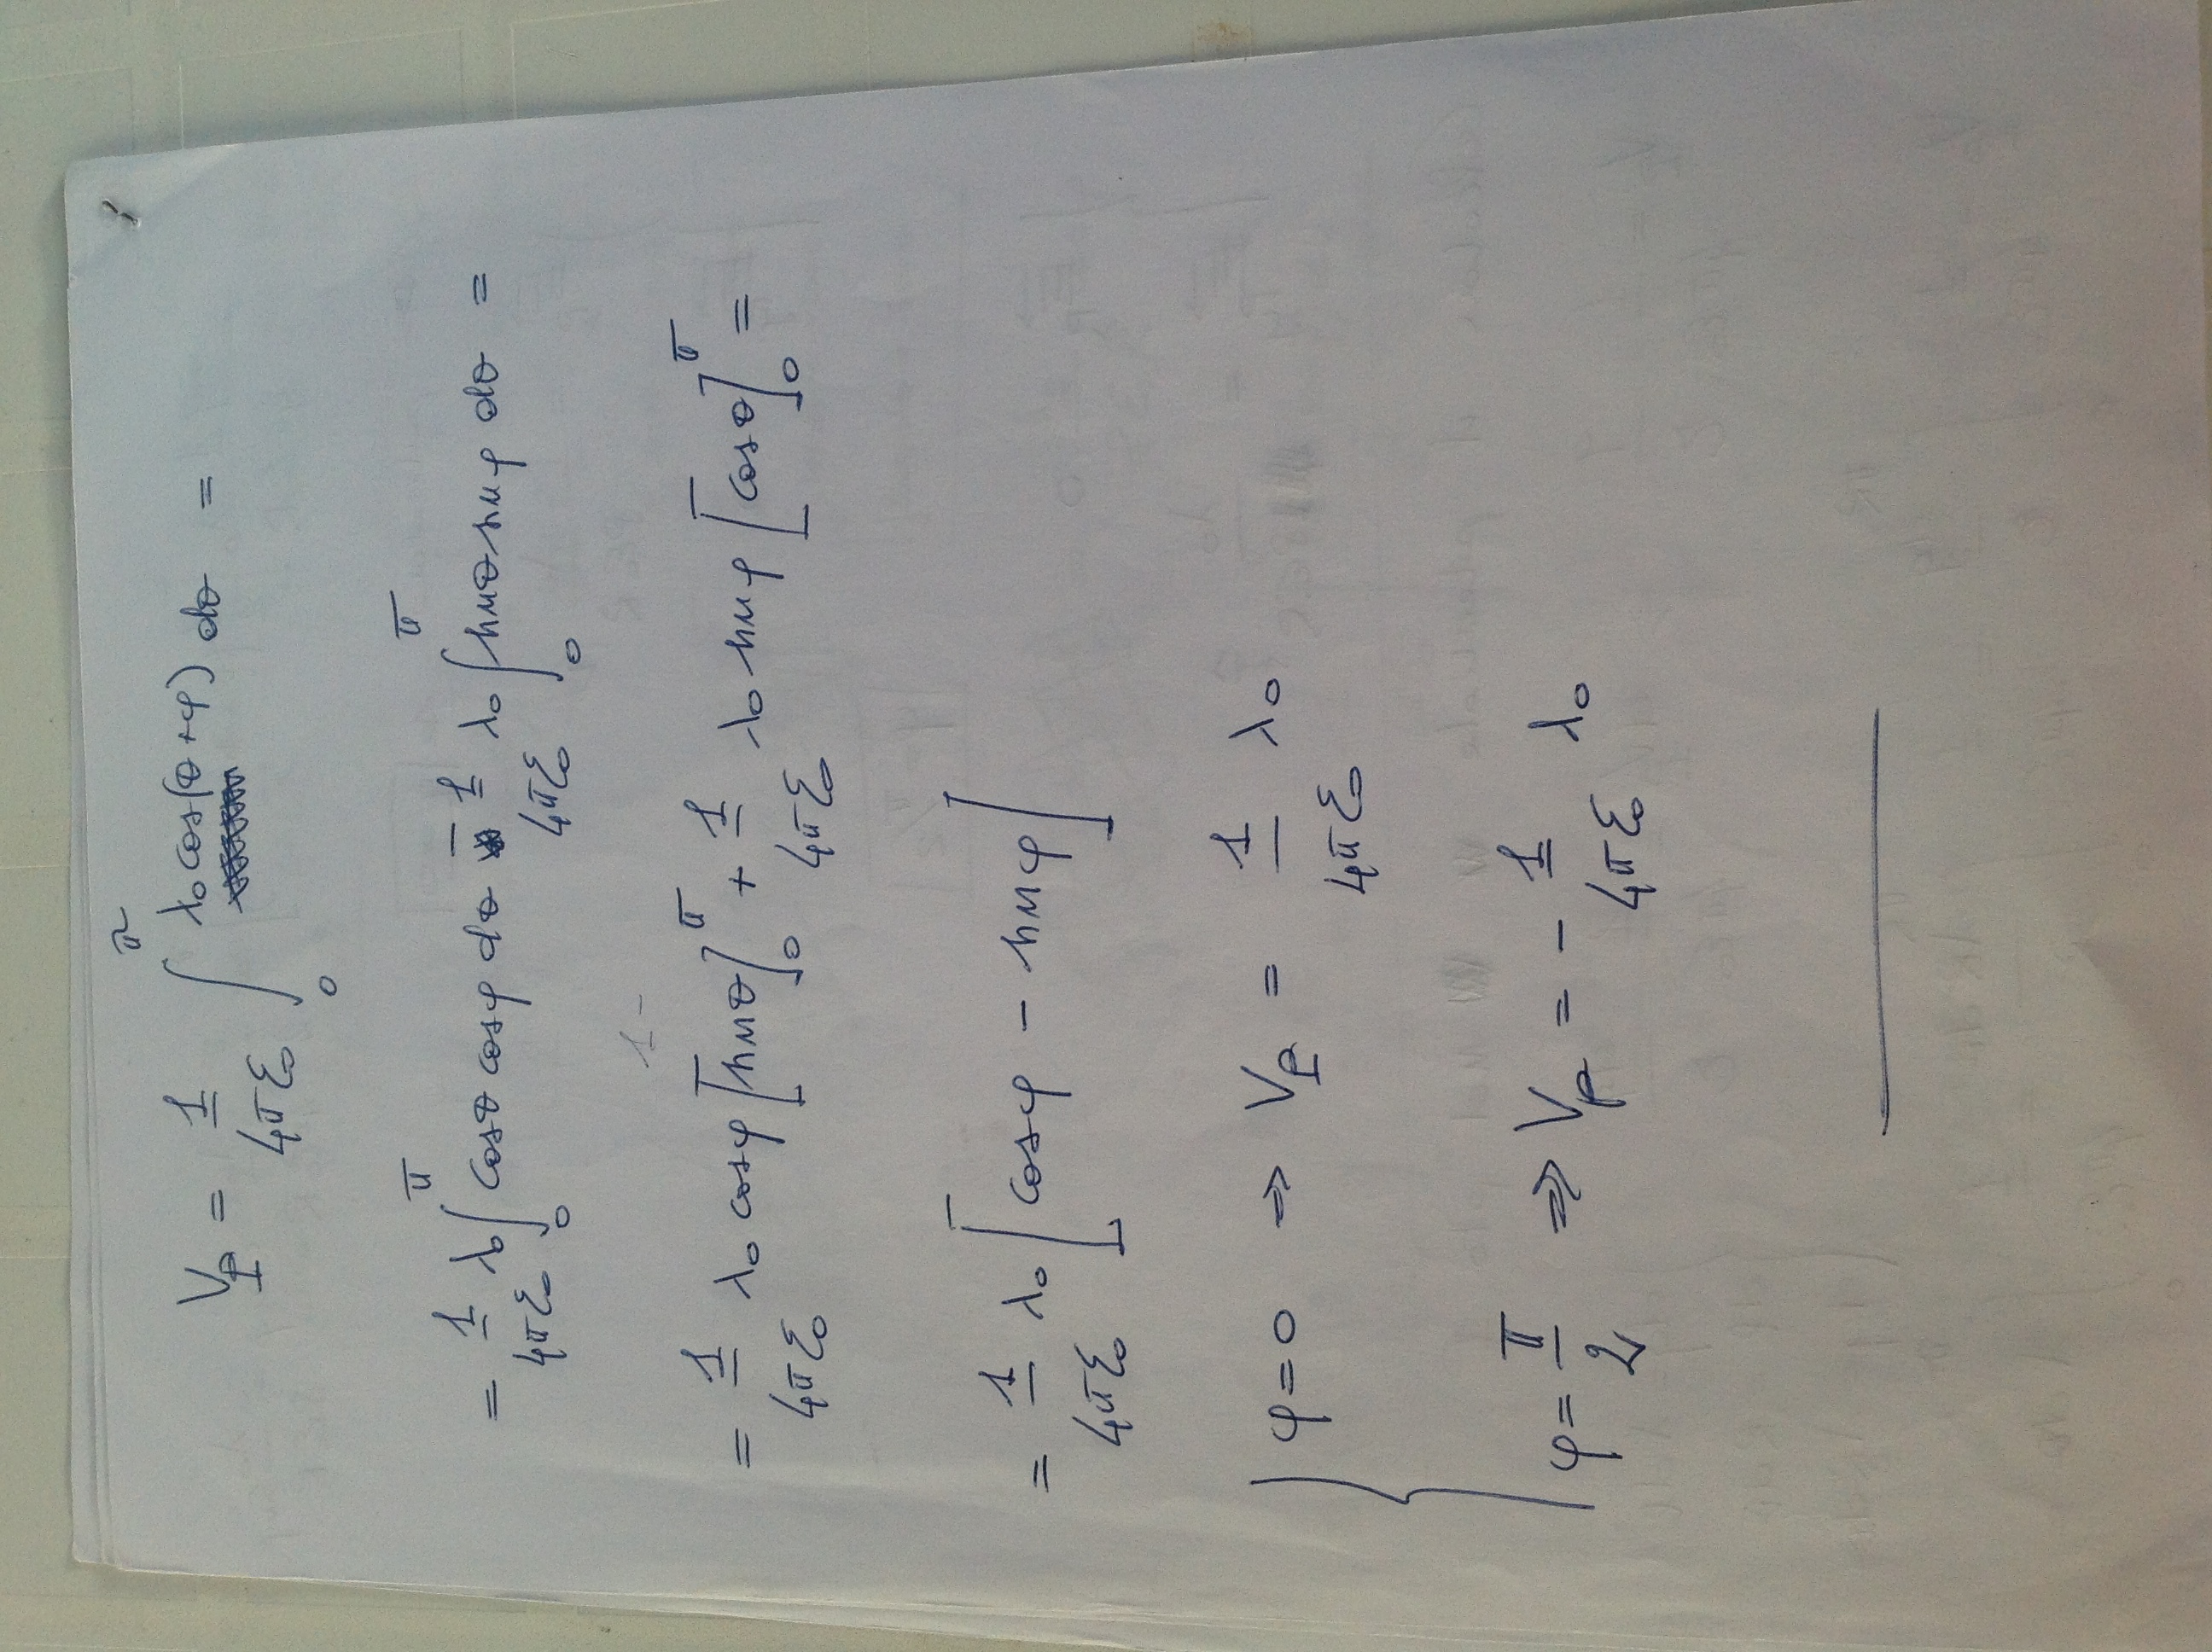 V_P = 1/4πε₀ ∫₀^π λ₀ cos(θ+φ) dθ =
= 1/4πε₀ λ₀ ∫₀^π cosθ cosφ dθ - 1/4πε₀ λ₀ ∫₀^π sinθ sinφ dθ =
1 -
= 1/4πε₀ λ₀ cosφ [sinθ]₀^π + 1/4πε₀ λ₀ sinφ [cosθ]₀^π =
= 1/4πε₀ λ₀ [cosφ - sinφ]
φ=0 ⇒ V_P = 1/4πε₀ λ₀
φ=π/2 ⇒ V_P = - 1/4πε₀ λ₀